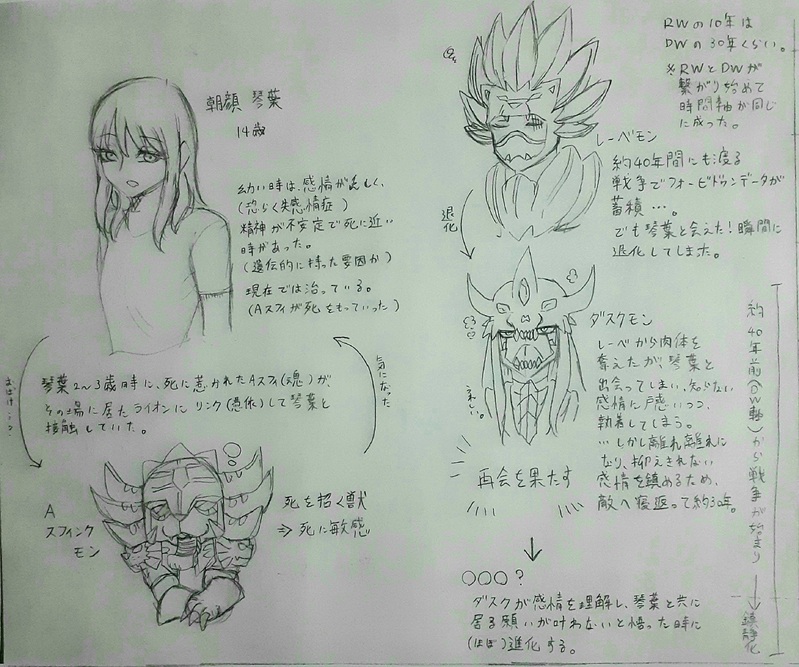 朝顔 琴葉
14歳
幼い時は、感情が乏しく、
(恐らく失感情症)
精神が不安定で死に近い
時があった。
(遺伝的に持った要因か)
現在では治っている。
(Aスフィが死をもっていった)
気になった
琴葉2〜3歳時に、死に惹かれたAスフィ(魂)が、
その場に居たライオンにリンク(憑依)して琴葉と
接触していた。
A
スフィンク
モン
死を招く獣
⇒死に敏感
RWの10年は
DWの30年くらい。
※RWとDWが
繋がり始めて
時間軸が同じ
に成った。
レーベモン
約40年間にも渡る
戦争でフォービドゥンデータが
蓄積…。
でも琴葉と会えた!瞬間に
退化してしまった。
退化
ダスクモン
レーベから肉体を
奪えたが、琴葉と
出会ってしまい、知らない
感情に戸惑いつつ、
執着してしまう。
…しかし離れ離れに
なり、抑えきれない
感情を鎮めるため、
敵へ寝返って約30年。
再会を果たす
○○○?
ダスクが感情を理解し、琴葉と共に
居る願いが叶わないと悟った時に
(ほぼ)進化する。
約40年前(DW軸)から戦争が始まり
鎮静化